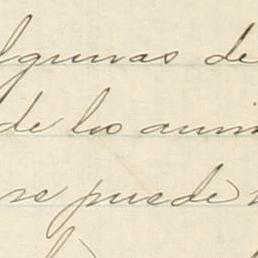 algunas de
de los anim
se puede